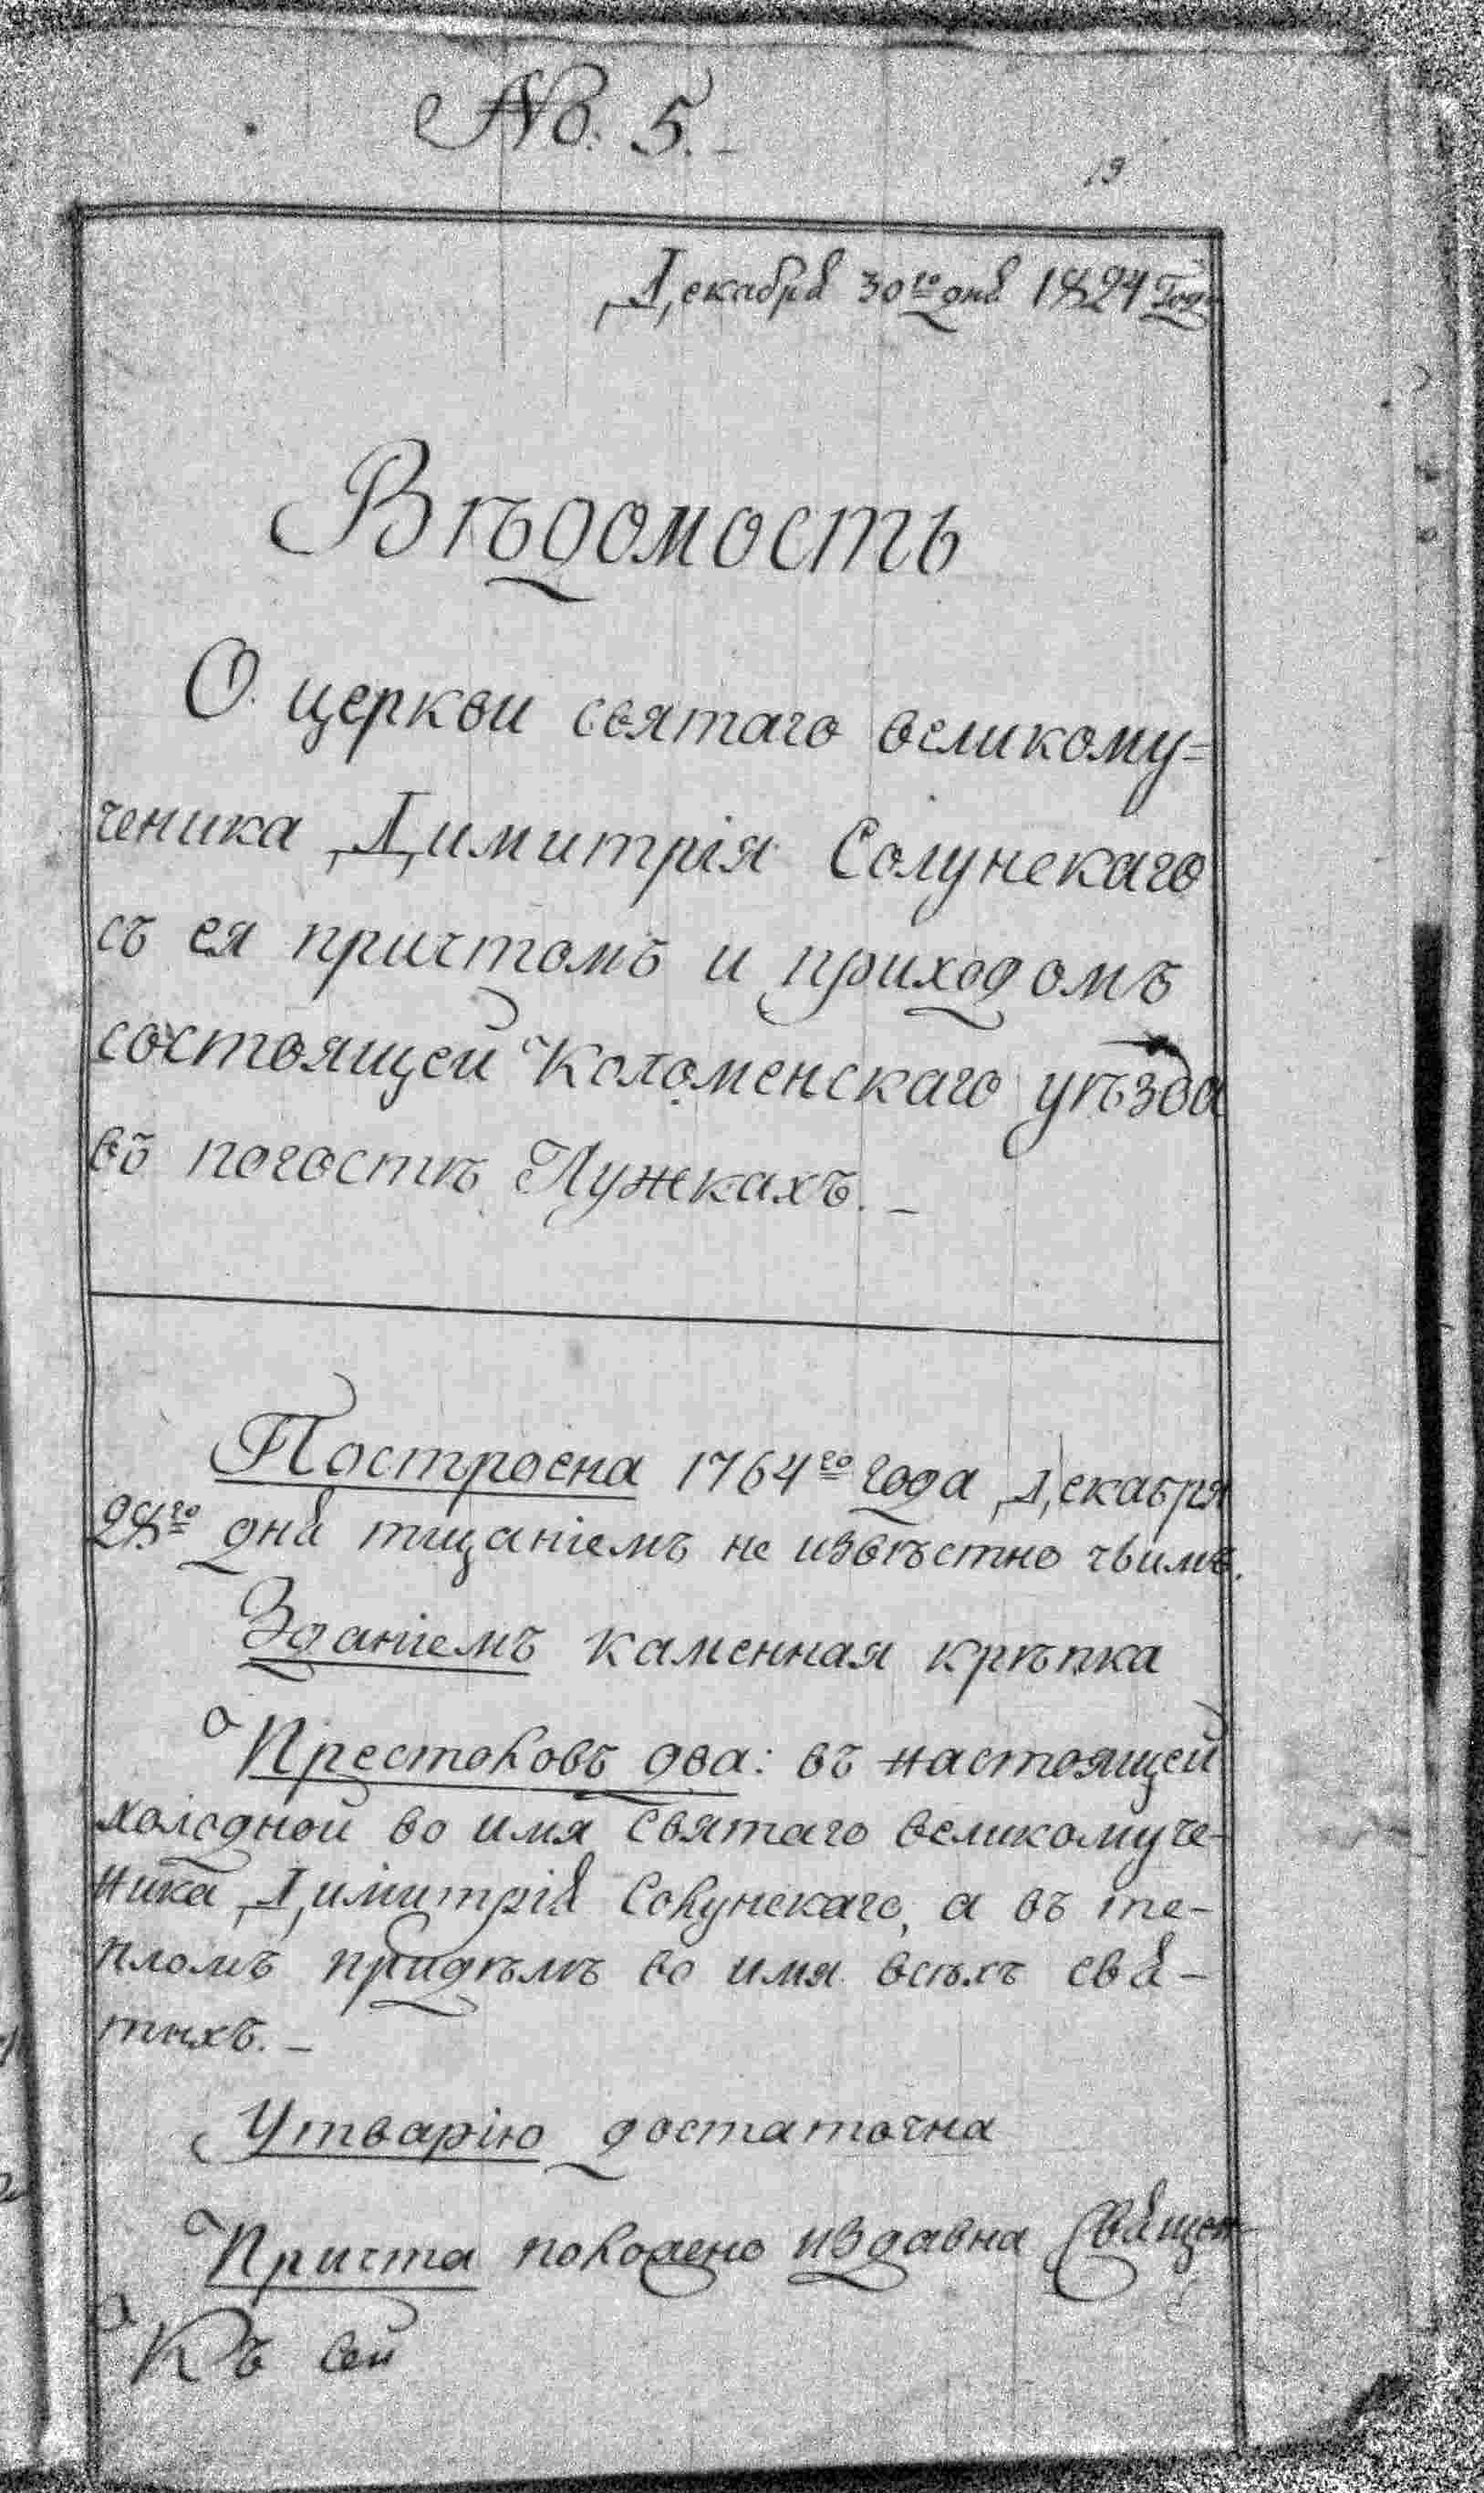 No. 5.
19
Декабря 30го дня 1824 Года
Вѣдомость
О церкви святаго великому=
ченика Димитрія Солунскаго
съ ея причтомъ и приходомъ
состоящей Коломенскаго уѣзда
въ погостѣ Лужкахъ.
Построена 1764го года Декабря
28го дня тщаніемъ не извѣстно чьимъ.
Зданіемъ каменная крѣпка
Престоловъ два: въ настоящей
холодной во имя святаго великомуче-
ника Димитрія Солунскаго, а въ те-
пломъ придѣлѣ во имя всѣхъ свя-
тыхъ.
Утварію достаточна
Причта положено издавна Священ-
Къ сей